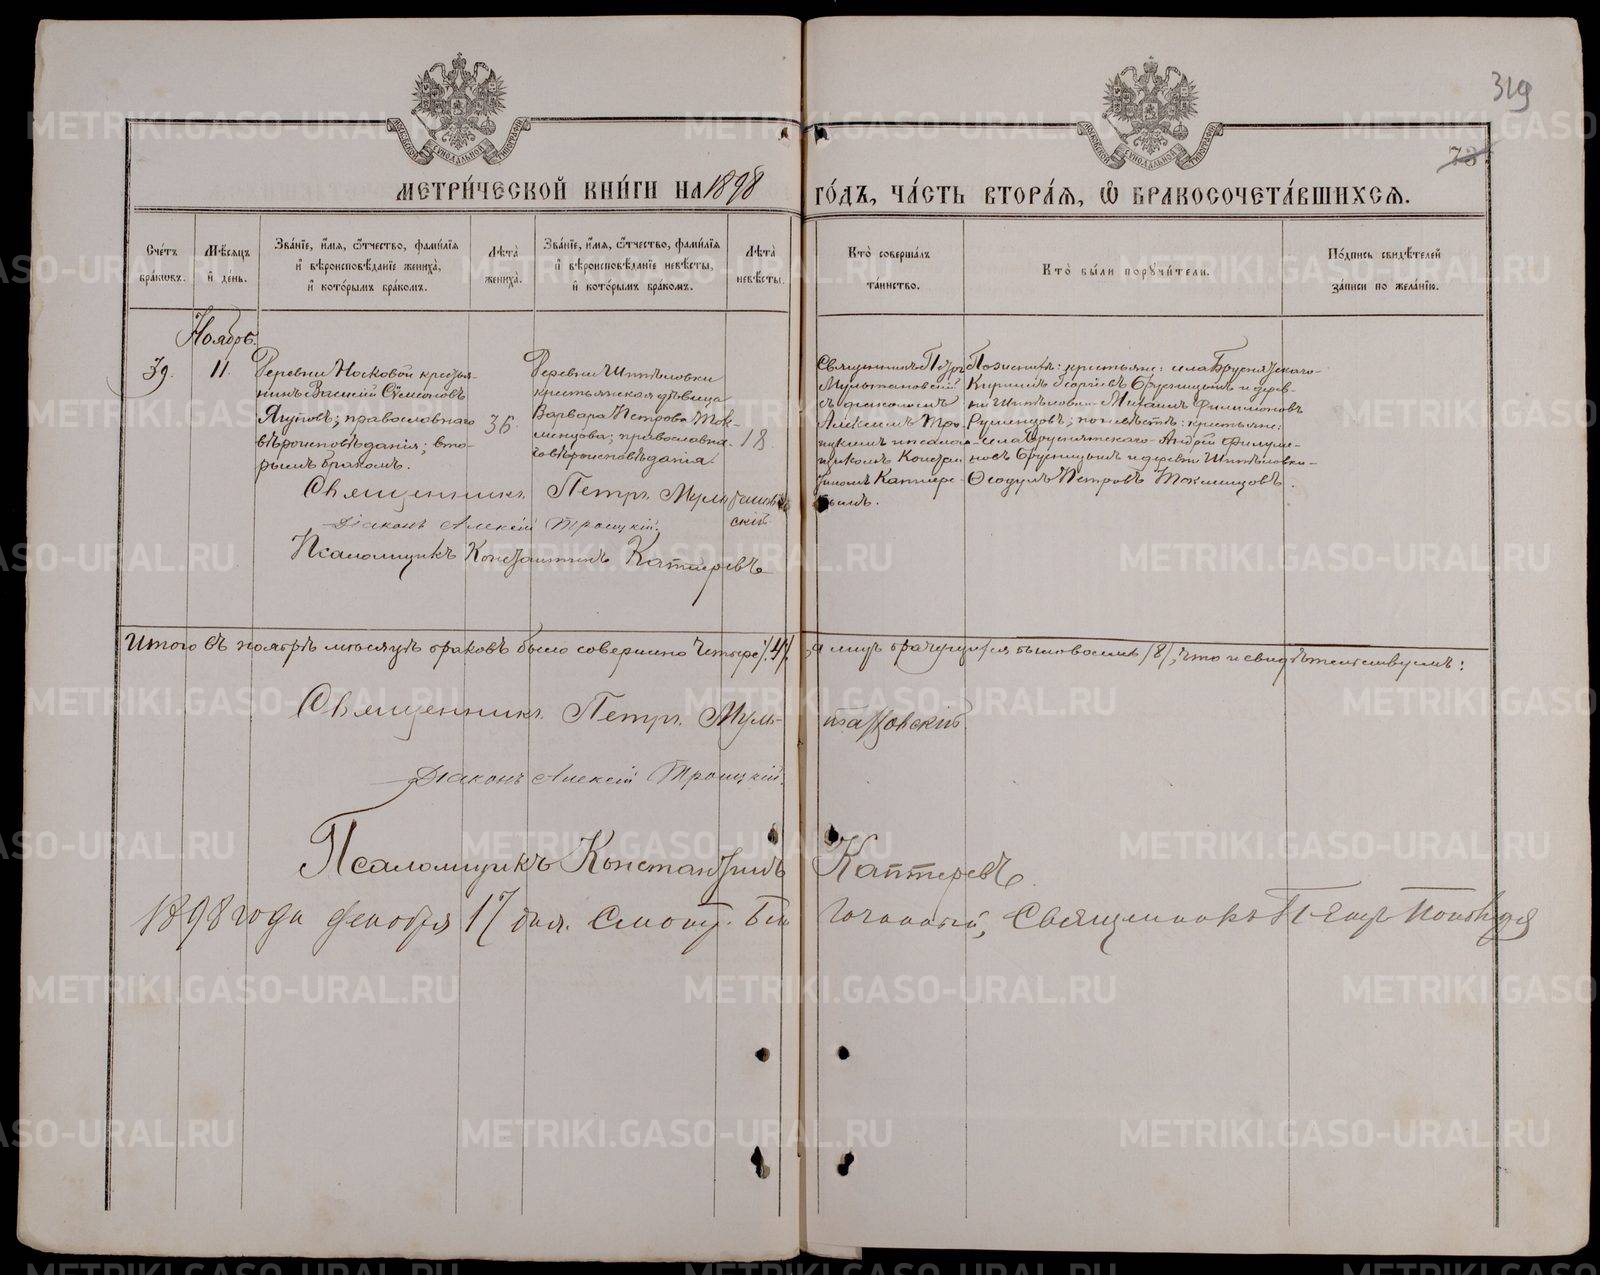 319
73
МЕТРИ́ЧЕСКОЙ КНИ́ГИ НА 1898 ГО́ДЪ, ЧА́СТЬ ВТОРА́Я, Ѽ БРАКОСОЧЕТА́ВШИХСЯ.
Сче́тъ бра́кωвъ.
Мѣ́сяцъ и҆ де́нь.
Зва́нїе, и҆́мя, ѻ҆́тчество, фами́лїя и҆ вѣроисповѣ́данїе жениха̀, и҆ кото́рымъ бра́комъ.
Лѣ́та жениха̀.
Зва́нїе, и҆́мя, ѻ҆́тчество, фами́лїя и҆ вѣроисповѣ́данїе невѣ́сты, и҆ кото́рымъ бра́комъ.
Лѣ́та невѣ́сты.
Кто̀ соверша́лъ та́инство.
Кто̀ бы́ли поручи́тели.
По́дпись свидѣ́телей за́писи по жела́нїю.
Ноябрь.
39.
11.
Деревни Носковой крестья-
нинъ Василій Сѷмеоновъ
Ягуповъ; православнаго
вѣроисповѣданія; вто-
рымъ бракомъ.
36.
Деревни
крестьянская дѣвица
Варвара Петрова Ток-
менцова; православна-
го вѣроисповѣданія.
18
Священникъ Петръ
Мультановскій
съ діакономъ
Алексіемъ Тро-
ицкимъ и псалом-
щикомъ Констан
тиномъ Каптере-
вымъ.
По женихѣ: крестьяне: села Бруснятскаго
Кириллъ Георгіевъ Брусницынъ и дерев-
ни Михаилъ Филимоновъ
Румянцовъ; по невѣстѣ: крестьяне:
села Бруснятскаго Андрей Филимо-
новъ Брусницынъ и деревни
Ѳеодулъ Петровъ Токменцовъ.
Священникъ Петръ Мультановскій
Діаконъ Алексій Троицкій.
Псаломщикъ Константинъ Каптеревъ
Итого въ ноябрѣ мѣсяцѣ браковъ было совершено четыре /4/, а лицъ брачущихся было восемь /8/, что и свидѣтельствуемъ:
Священникъ Петръ Мультановскій.
Діаконъ Алексій Троицкій.
Псаломщикъ Константинъ Каптеревъ.
1898 года декабря 17 дня. Смотр. Благочинный, Священникъ Петръ
METRIKI.GASO-URAL.RU